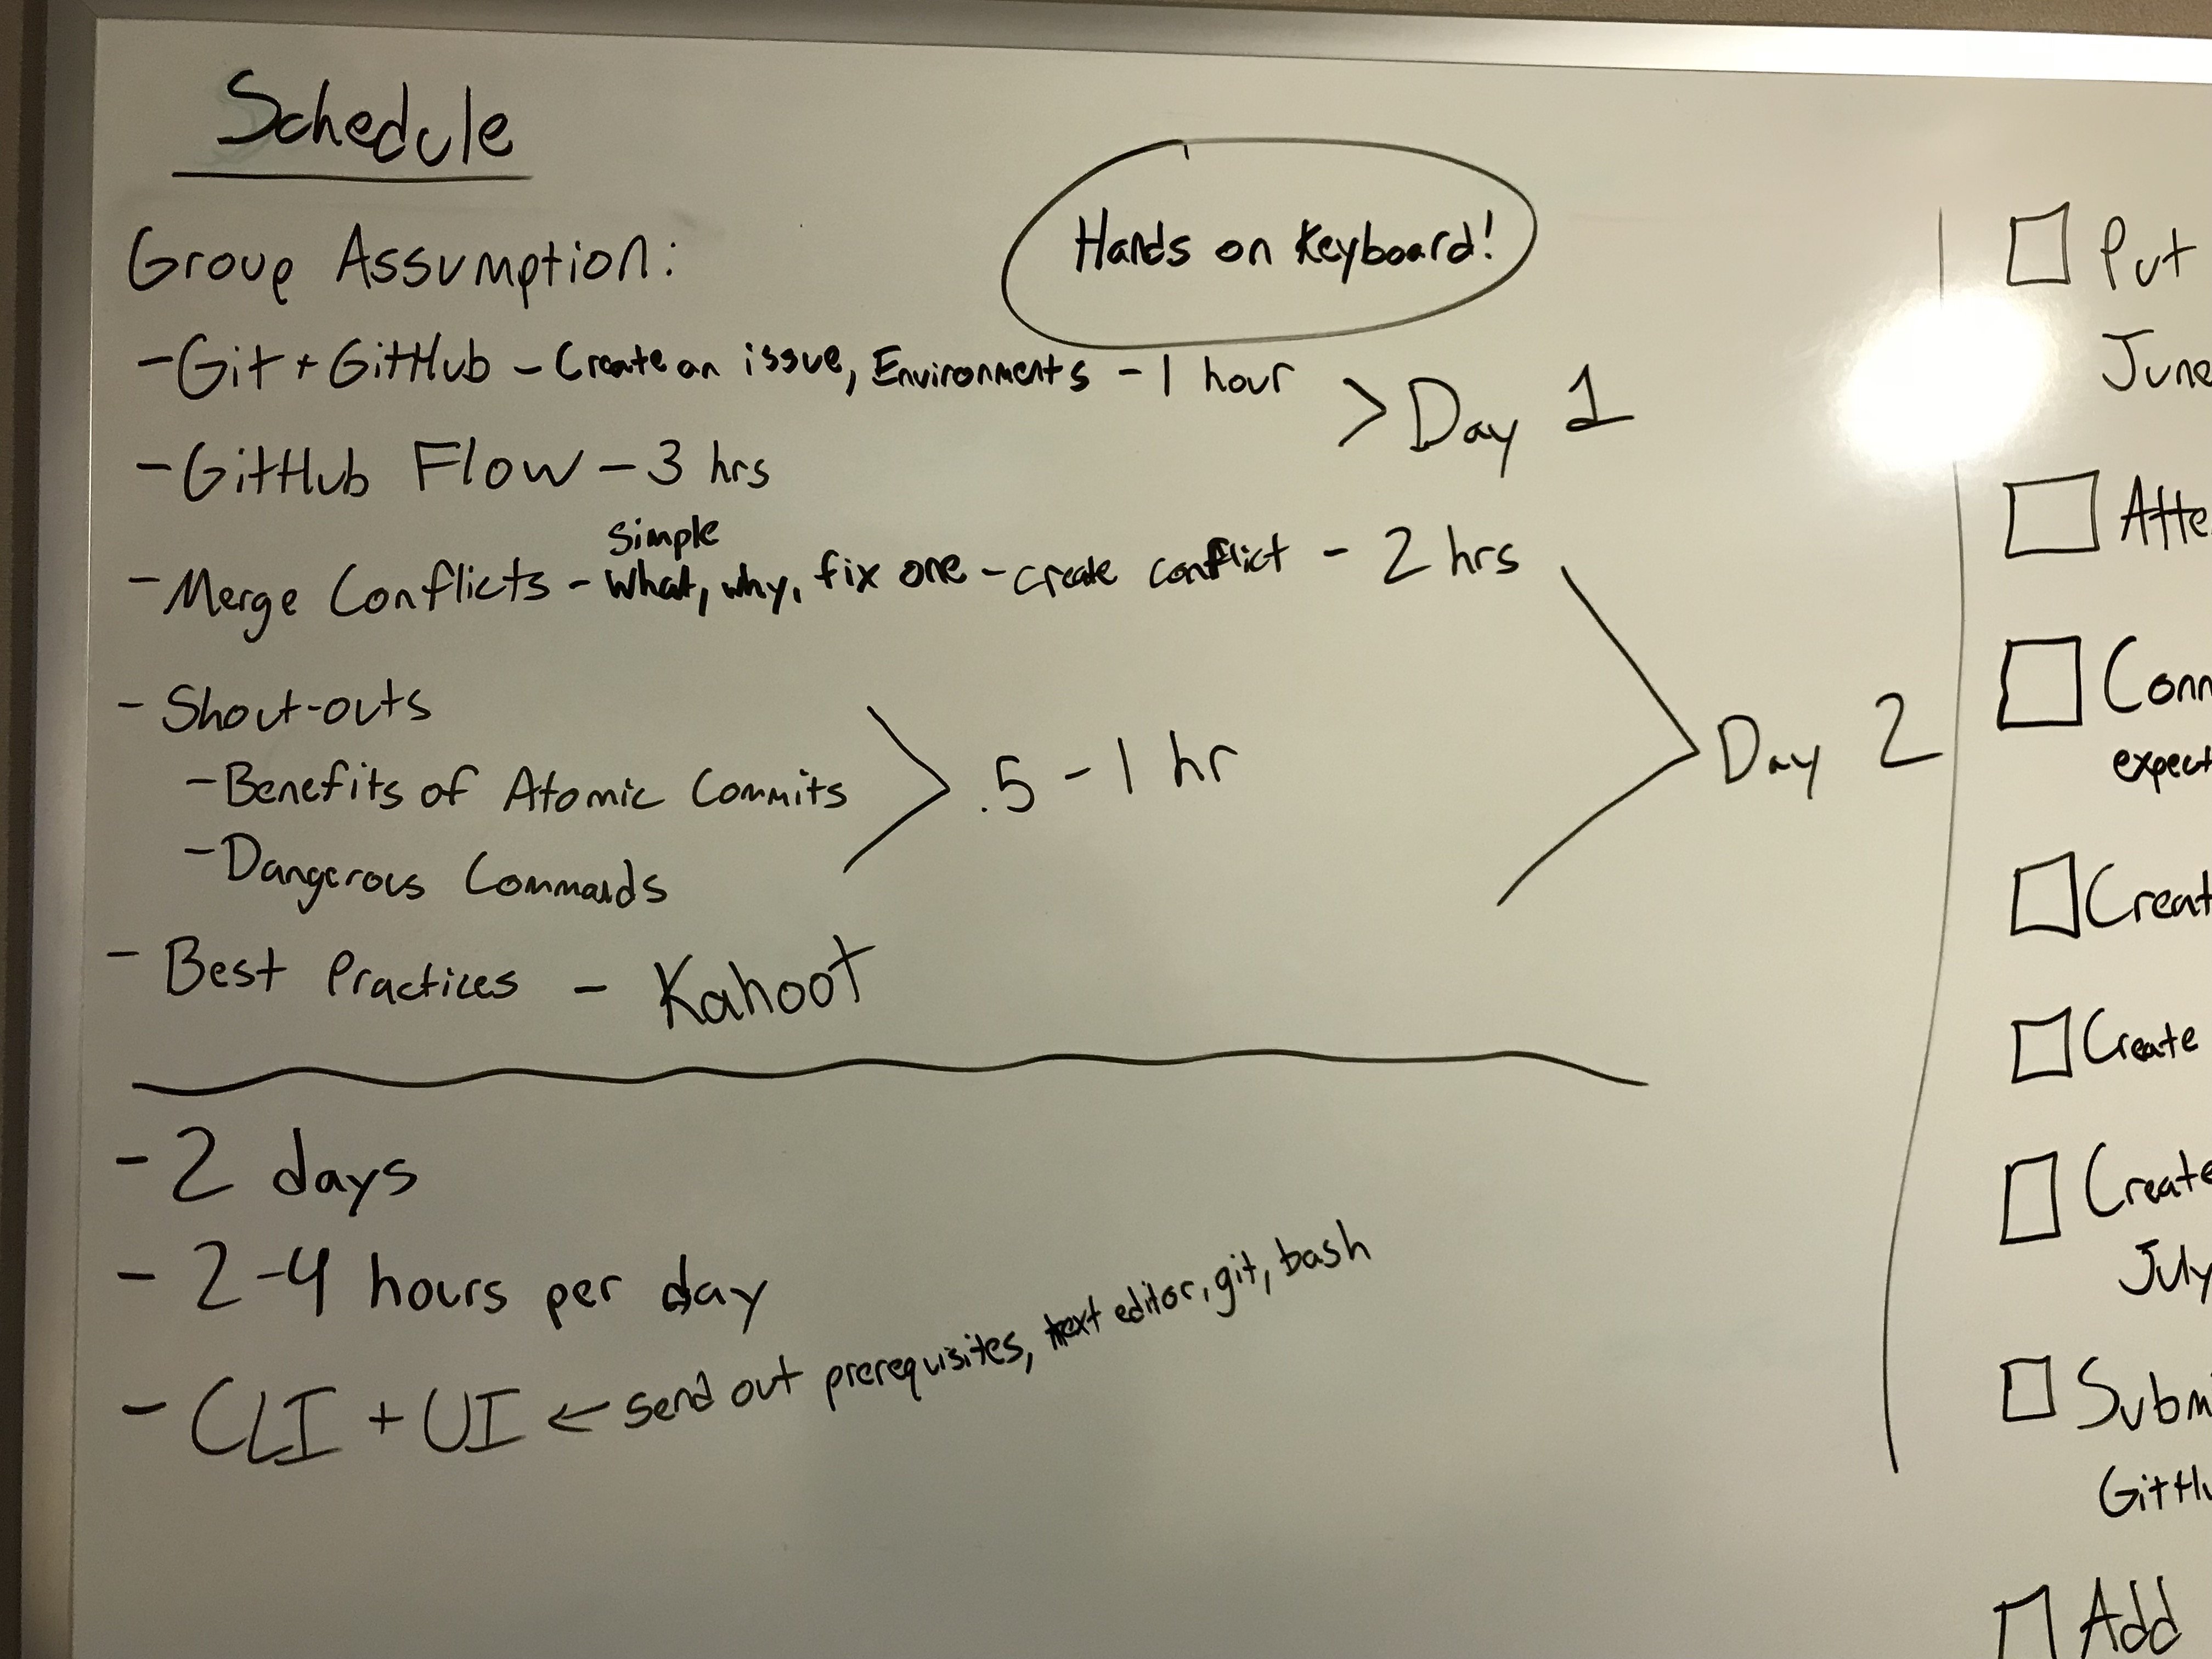 Schedule
Hands on Keyboard!
Group Assumption:
- Git + GitHub - Create an issue, Environments - 1 hour
> Day 1
- GitHub Flow - 3 hrs
simple
- Merge Conflicts - what, why, fix one - create conflict - 2 hrs
- Shout-outs
- Benefits of Atomic Commits
.5 - 1 hr
Day 2
- Dangerous Commands
- Best Practices - Kahoot
- 2 days
- 2-4 hours per day
- CLI + UI ← send out prerequisites, text editor, git, bash
Put
June
Atte
Conn
expect
Creat
Create
Create
July
Subm
GitHu
Add